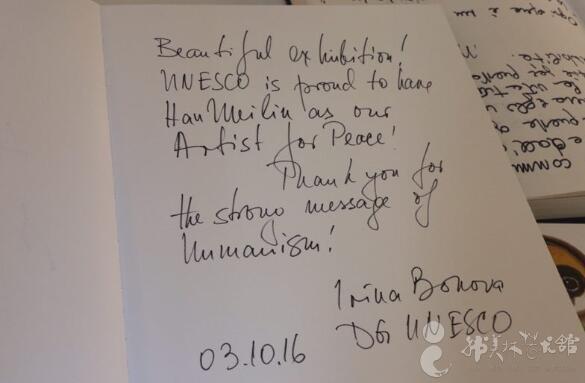 Beautiful exhibition!
UNESCO is proud to have
Han Meilin as our
Artist for Peace!
Thank you for
the strong message of
Humanism!
Irina Bokova
DG UNESCO
03.10.16
韩美林艺术館